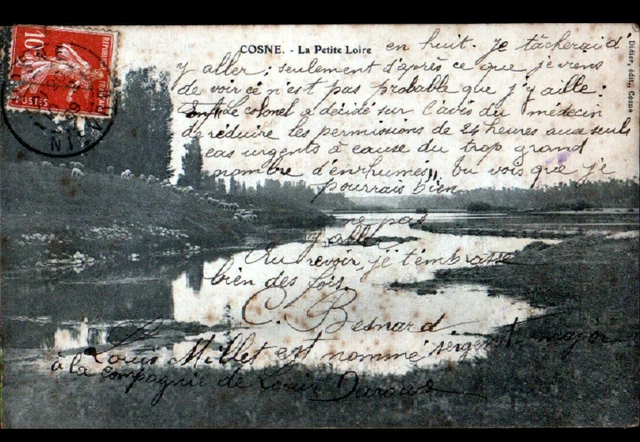 10c
POSTES
COSNE. - La Petite Loire
Didier, édit., Cosne
en huit. Je tâcherai d'
y aller; seulement d'après ce que je viens
de voir ce n'est pas probable que j'y aille:
Le colonel a décidé sur l'avis du médecin
de réduire les permissions de 24 heures aux seuls
cas urgents à cause du trop grand
nombre d'enrhumés,, tu vois que je
pourrais bien
ne pas
y aller
Au revoir, je t'embrasse
bien des fois.
C. Besnard
Louis Millet est nommé sergent major
à la compagnie de Louis